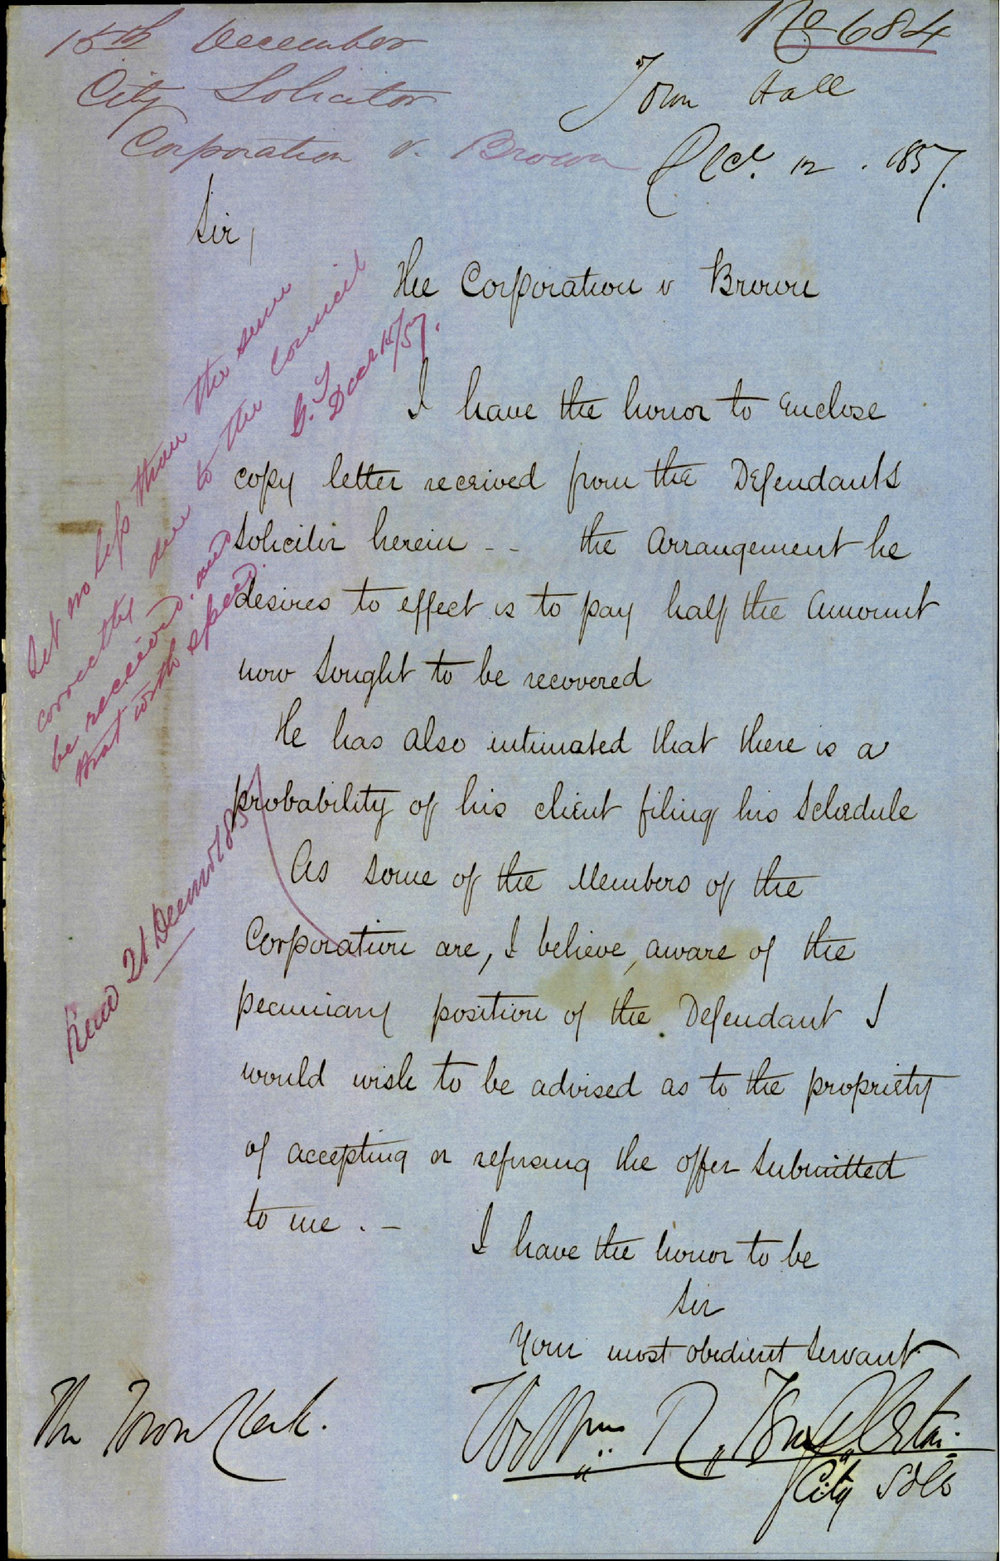 No 684
15th December
City Solicitor
Corporation v. Brown
Town Hall
Decr. 12. 1857.
Sir,
The Corporation v Brown
I have the honor to enclose
copy letter received from the Defendants
Solicitor herein - - the Arrangement he
desires to effect is to pay half the Amount
now Sought to be recovered
He has also intimated that there is a
probability of his client filing his Schedule
As some of the Members of the
Corporation are, I believe, aware of the
pecuniary position of the Defendant I
would wish to be advised as to the propriety
of accepting or refusing the offer Submitted
to me. -
I have the honor to be
Sir
Your most obedient Servant
City Solr
The Town Clerk.
Let no less than the sum
correctly due to the Council
be received. and
that with speed
G.T
Decr 15/57.
21 Decemr 1857